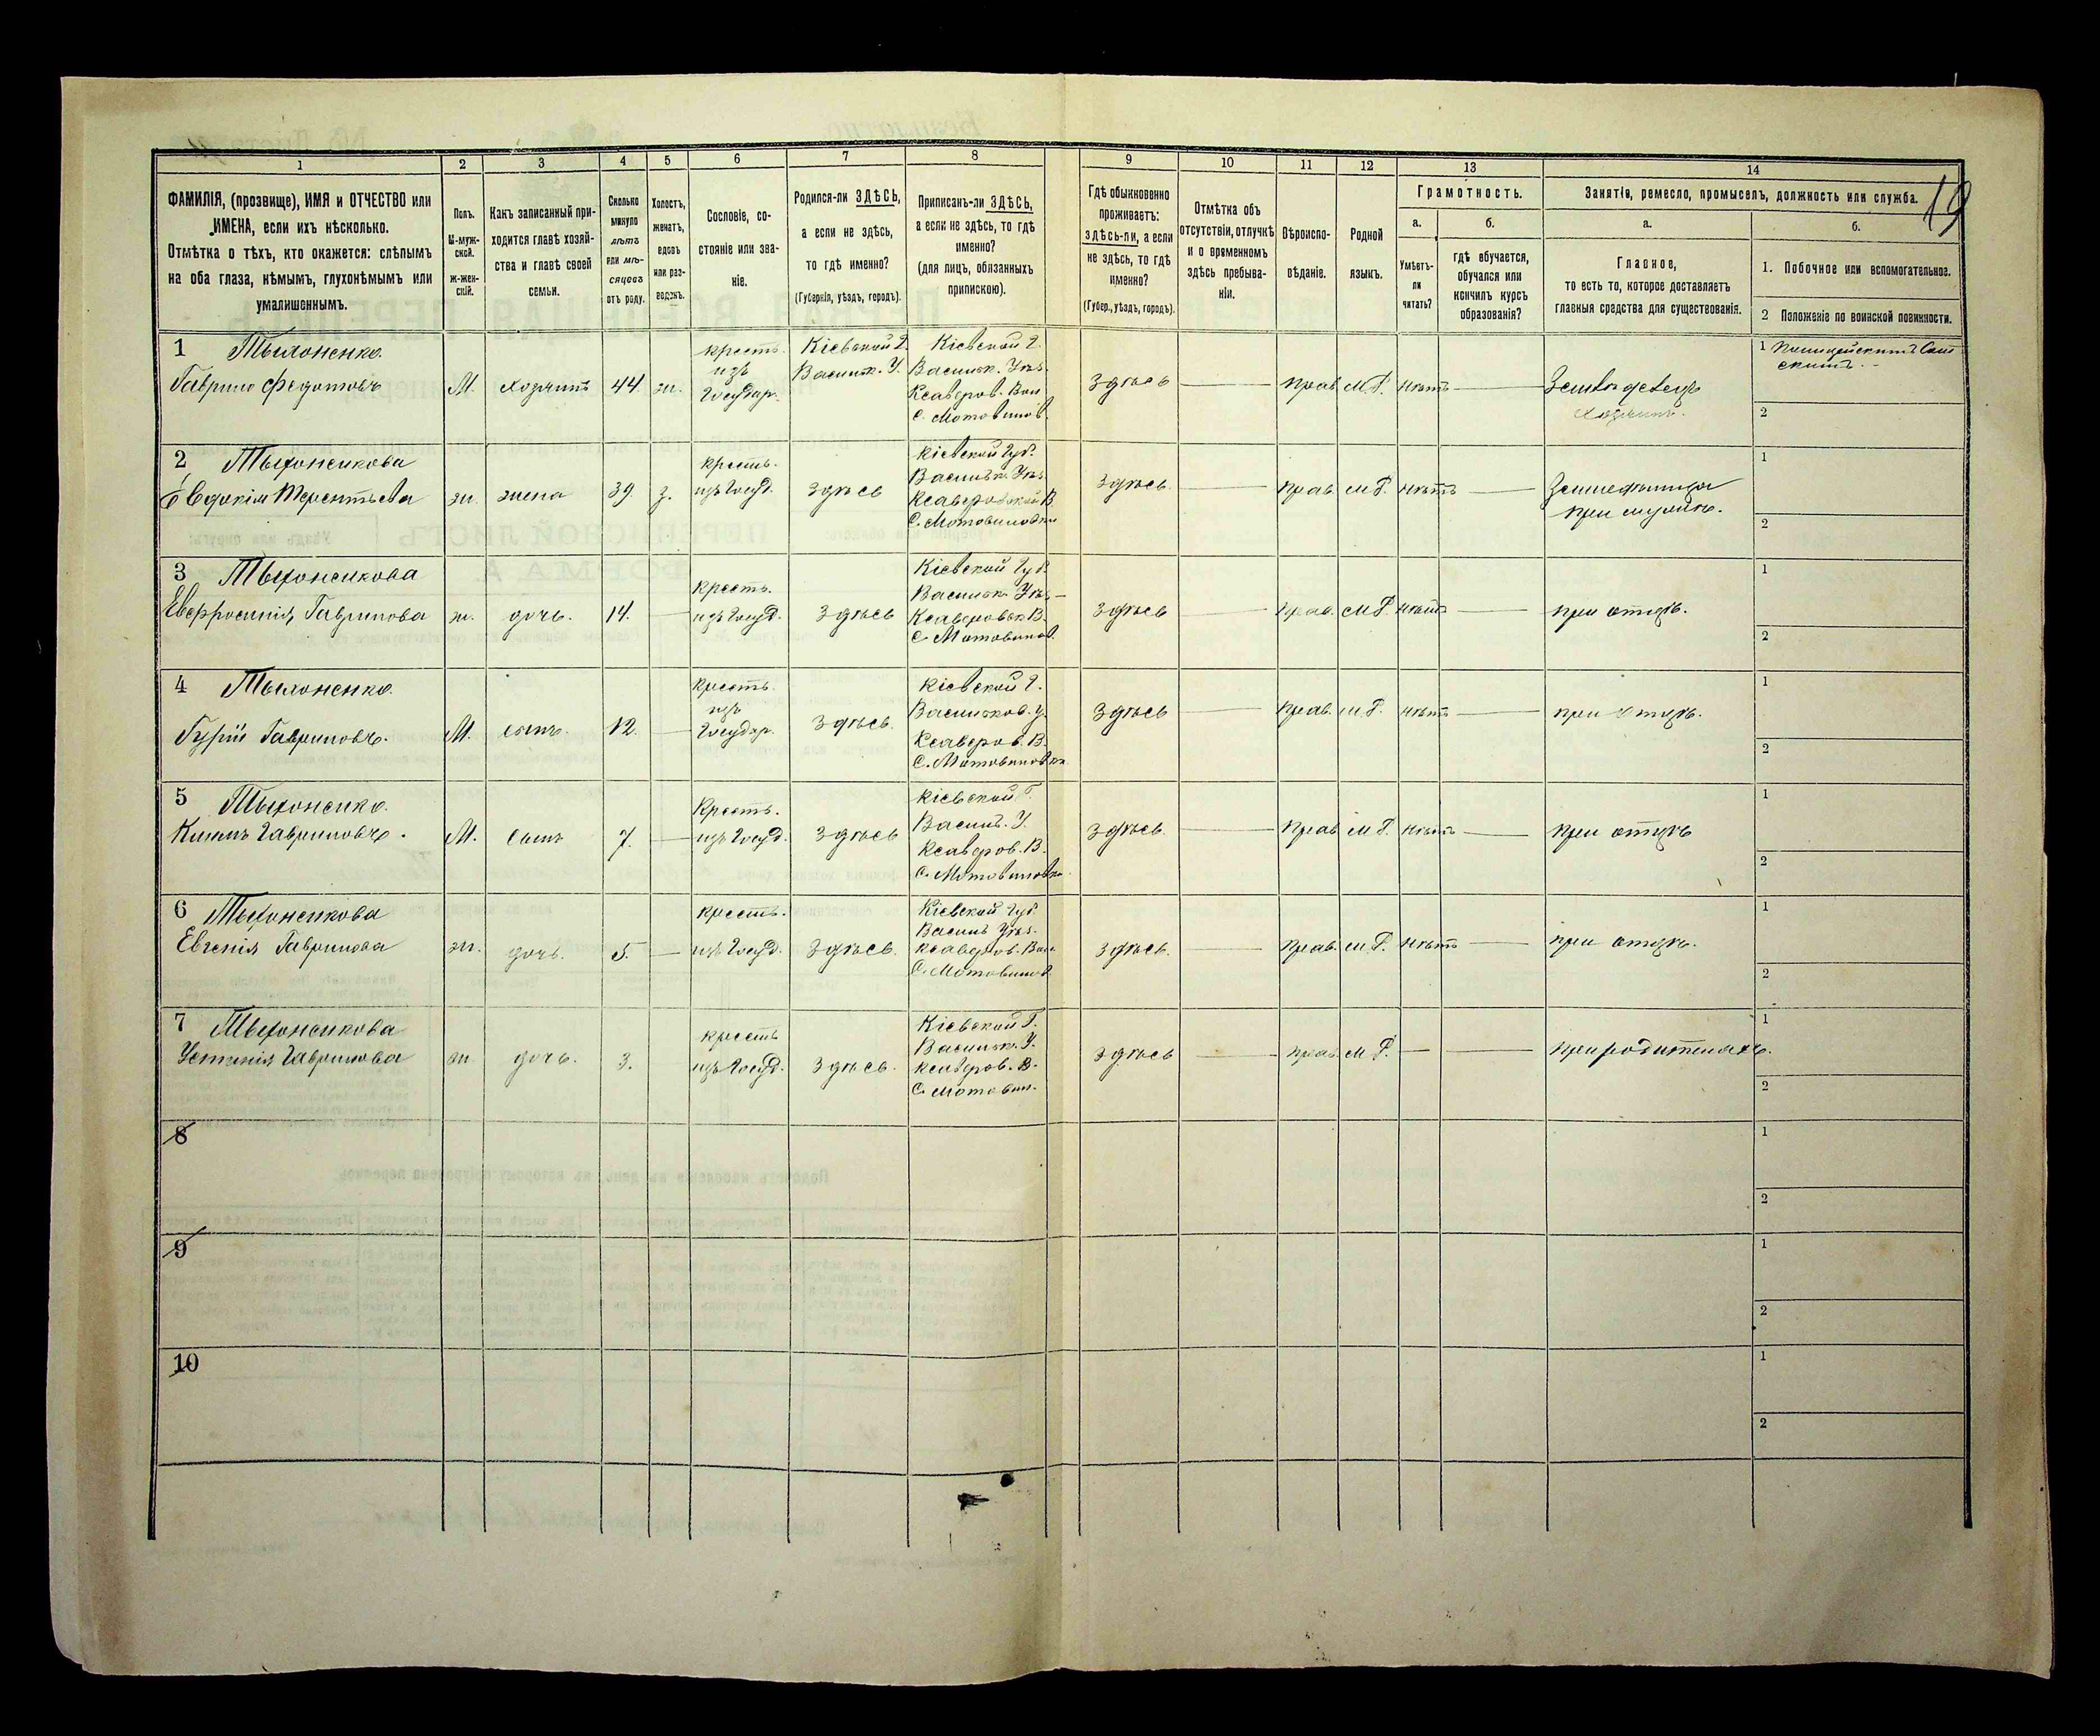 19
1 2 3 4 5 6 7 8 9 10 11 12 13 14
ФАМИЛІЯ, (прозвище), ИМЯ и ОТЧЕСТВО или
ИМЕНА, если ихъ нѣсколько.
Отмѣтка о тѣхъ, кто окажется: слѣпымъ
на оба глаза, нѣмымъ, глухонѣмымъ или
умалишеннымъ.
Полъ.
М-муж-
ской.
ж-жен-
скій.
Какъ записанный при-
ходится главѣ хозяй-
ства и главѣ своей
семьи.
Сколько
минуло
лѣтъ
или мѣ-
сяцевъ
отъ роду.
Холостъ,
женатъ,
вдовъ
или раз-
веденъ.
Сословіе, со-
стояніе или зва-
ніе.
Родился-ли ЗДѢСЬ,
а если не здѣсь,
то гдѣ именно?
(Губернія, уѣздъ, городъ).
Приписанъ-ли ЗДѢСЬ,
а если не здѣсь, то гдѣ
именно?
(для лицъ, обязанныхъ
припискою).
Гдѣ обыкновенно
проживаетъ:
здѣсь-ли, а если
не здѣсь, то гдѣ
именно?
(Губер., уѣздъ, городъ).
Отмѣтка объ
отсутствіи, отлучкѣ
и о временномъ
здѣсь пребыва-
ніи.
Вѣроиспо-
вѣданіе.
Родной
языкъ.
Грамотность.
а.
Умѣетъ-
ли
читать?
б.
гдѣ обучается,
обучался или
кончилъ курсъ
образованія?
Занятія, ремесло, промыселъ, должность или служба.
а.
Главное,
то есть то, которое доставляетъ
главныя средства для существованія.
б.
1. Побочное или вспомогательное.
2 Положеніе по воинской повинности.
1
Гаврило Федотовъ
М. хозяинъ 44. ж.
крестъ.
изъ
Государ.
Кіевской Г.
Васильк. У.
Кіевской Г.
Васильк. Уѣз.
Ксаверов. Вол
с. Мотовилов.
здѣсь прав. М.Р. нѣтъ
Земледелецъ
хозяинъ.
1
2
2
Евдокія Терентьева
ж. жена 39. з.
крестъ.
изъ Госуд.
здѣсь
Кіевской Губ.
Васильк. Уѣз.
Ксаверовской В.
С. Мотовиловки
здѣсь. прав. М.Р. нѣтъ
при мужѣ.
1
2
3
Евфросинія Гаврилова
ж. дочь. 14.
крестъ.
изъ Госуд.
здѣсь
Кіевской Губ.
Васильк. Уѣз.
Ксаверовск В.
С. Мотовилов.
здѣсь прав. М.Р. нѣтъ
при отцѣ.
1
2
4
Гурій Гавриловъ.
М. сынъ. 12.
крестъ.
изъ
Государ.
здѣсь.
Кіевской Г.
Васильков. у.
Ксаверов. В.
С. Мотовиловки
здѣсь прав. М.Р. нѣтъ
при отцѣ.
1
2
5
Гавриловъ.
М. сынъ 7.
Крестъ.
изъ Госуд.
здѣсь
Кіевской Г.
Васильк. У.
Ксаверов. В.
С. Мотовиловки
здѣсь. прав М.Р. нѣтъ
при отцѣ
1
2
6
Евгенія Гаврилова
ж. дочь. 5.
крестъ.
изъ Госуд.
здѣсь.
Кіевской Губ.
Васильк Уѣз.
Ксаверов. Вол.
С. Мотовилов.
здѣсь. прав. М.Р. нѣтъ
при отцѣ.
1
2
7
Устинія Гаврилова
ж. дочь. 3.
крестъ
изъ Госуд.
здѣсь.
Кіевской Г.
Васильк. У.
Ксаверов. В.
С. Мотовил.
здѣсь прав. М.Р.
при родителяхъ.
1
2
8
1
2
9
1
2
10
1
2